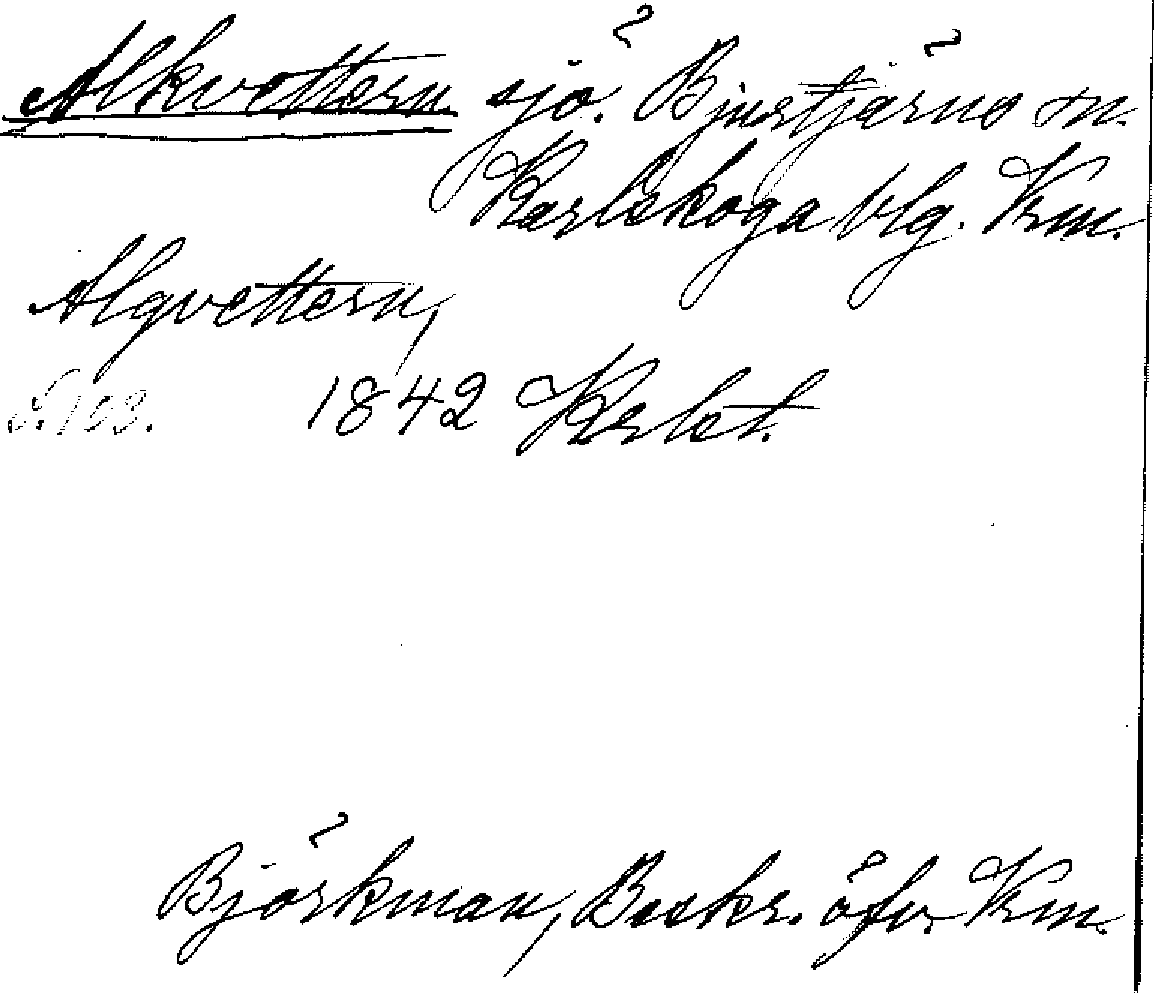 Alkvettern sjö. Bjurtjärns sn.
Karlskoga blg. Vrm.
Algvettern,
S. 103. 1842 Krlst.
Björkman, Beskr. öfvr Vrm.